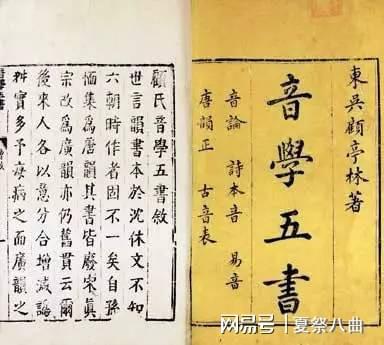 東吳顧亭林著
音學五書
音論 詩本音 易音
唐韻正 古音表
顧氏音學五書敘
世言韻書本於沈休文不知
六朝時作者固不一矣自孫
愐集為唐韻其書皆廢宋眞
宗改為廣韻亦仍舊貫云爾
後來人各以意分合增減譌
舛實多予病之而廣韻之
网易号 | 夏祭八曲